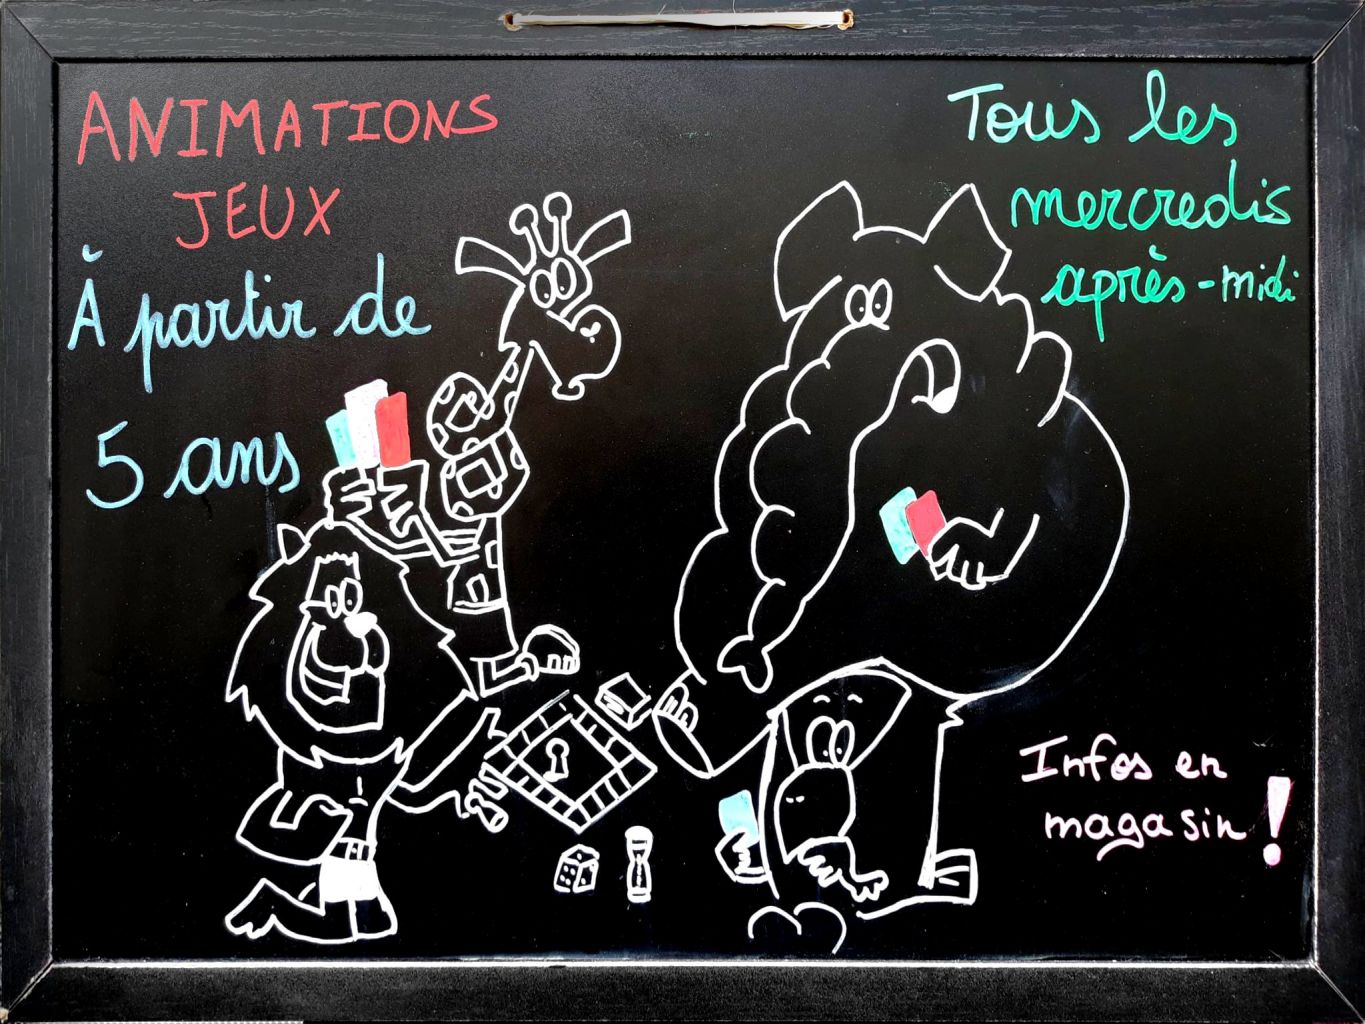 ANIMATIONS
JEUX
À partir de
5 ans
Tous les
mercredis
après-midi
Infos en
magasin !